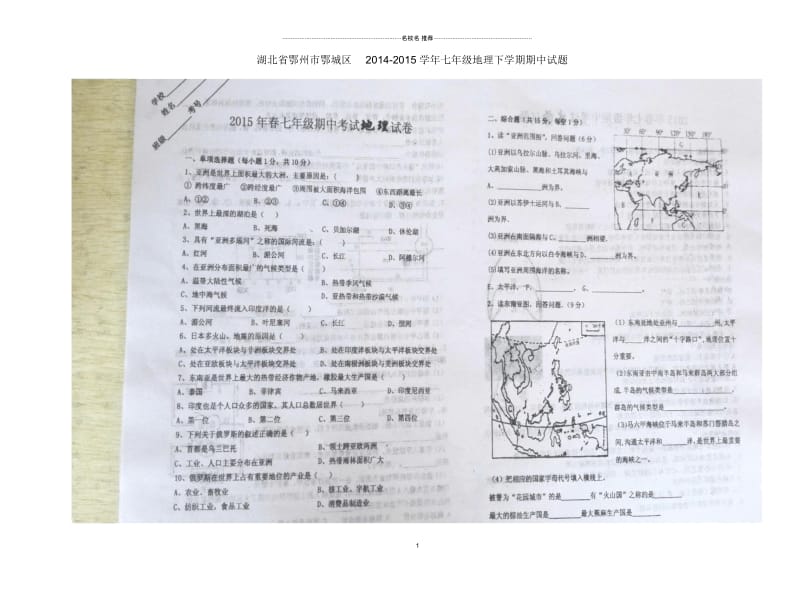 名校名 推荐
湖北省鄂州市鄂城区 2014-2015 学年七年级地理下学期期中试题
学校
姓名
考号
班级
2015 年春七年级期中考试地理试卷
一、单项选择题（每小题 1 分，共 10 分）
1、亚洲是世界上面积最大的大洲，主要原因是：（ ）
① 跨纬度最广 ②跨经度最广 ③周围被大面积海洋包围 ④东西距离最长
A、①② B、②③ C、③④ D、①④
2、世界上最深的湖泊是（ ）
A、黑海 B、死海 C、贝加尔湖 D、休伦湖
3、具有“亚洲多瑙河”之称的国际河流是：（ ）
A、红河 B、湄公河 C、长江 D、阿穆尔河
4、在亚洲分布面积最广的气候类型是（ ）
A、温带大陆性气候 B、热带季风气候
C、地中海气候 D、亚热带和热带沙漠气候
5、下列河流最终流入印度洋的是（ ）
A、湄公河 B、叶尼塞河 C、长江 D、恒河
6、日本多火山、地震的原因是（ ）
A、处太平洋板块与非洲板块交界处 B、处在印度洋板块与太平洋板块交界处
C、处在亚欧板块与太平洋板块交界处 D、处在南极洲板块与美洲板块交界处
7、东南亚是世界上最大的热带经济作物产地，橡胶最大生产国是（ ）
A、泰国 B、菲律宾 C、马来西亚 D、印度尼西亚
8、印度也是个人口众多的国家，其人口总数居世界（ ）
A、第一位 B、第二位 C、第三位 D、第四位
9、下列关于俄罗斯的叙述正确的是（ ）
A、首都是乌兰巴托 B、领土跨亚欧两洲
C、工业、人口主要分布在亚洲 D、热带雨林面积广大
10、俄罗斯在世界上占有重要地位的产业是（ ）
A、农业、畜牧业 B、核工业、宇航工业
C、纺织工业，食品工业 D、消费品制造业
二、综合题（共 15 分，每空 1 分）
1、读“亚洲范围图”，回答问题（6 分）
(1)亚洲以乌拉尔山脉、乌拉尔河，里海、
大高加索山脉、黑海和土耳其海峡与
A、洲为界。
(2)亚洲以苏伊士运河与 D、
洲为界。
(3)亚洲在南面隔海与 C、洲相望。
(4)亚洲在东北方向以白令海峡与 B、洲为界。
(5)填写亚洲周围海洋的名称。
E、太平洋，F： ，G： 。
2、读东南亚图，回答问题。（9 分）
（1）东南亚地处亚洲与 大洋洲，太平
洋与 洋之间的“十字路口”，地理位置
十分重要。
（2）东南亚由中南半岛和马来群岛两大部分组
成，半岛的气候类型是 ，
群岛的气候类型是 。
（3）马六甲海峡位于马来半岛和苏门答腊岛之
间，沟通太平洋和 洋，是世界上最重要
的海峡之一。
（4）把相应的国家字母代号填入横线上。
被誉为“花园城市”的是 有“火山国”之称的是
最大的棕油生产国是 最大蕉麻生产国是
1